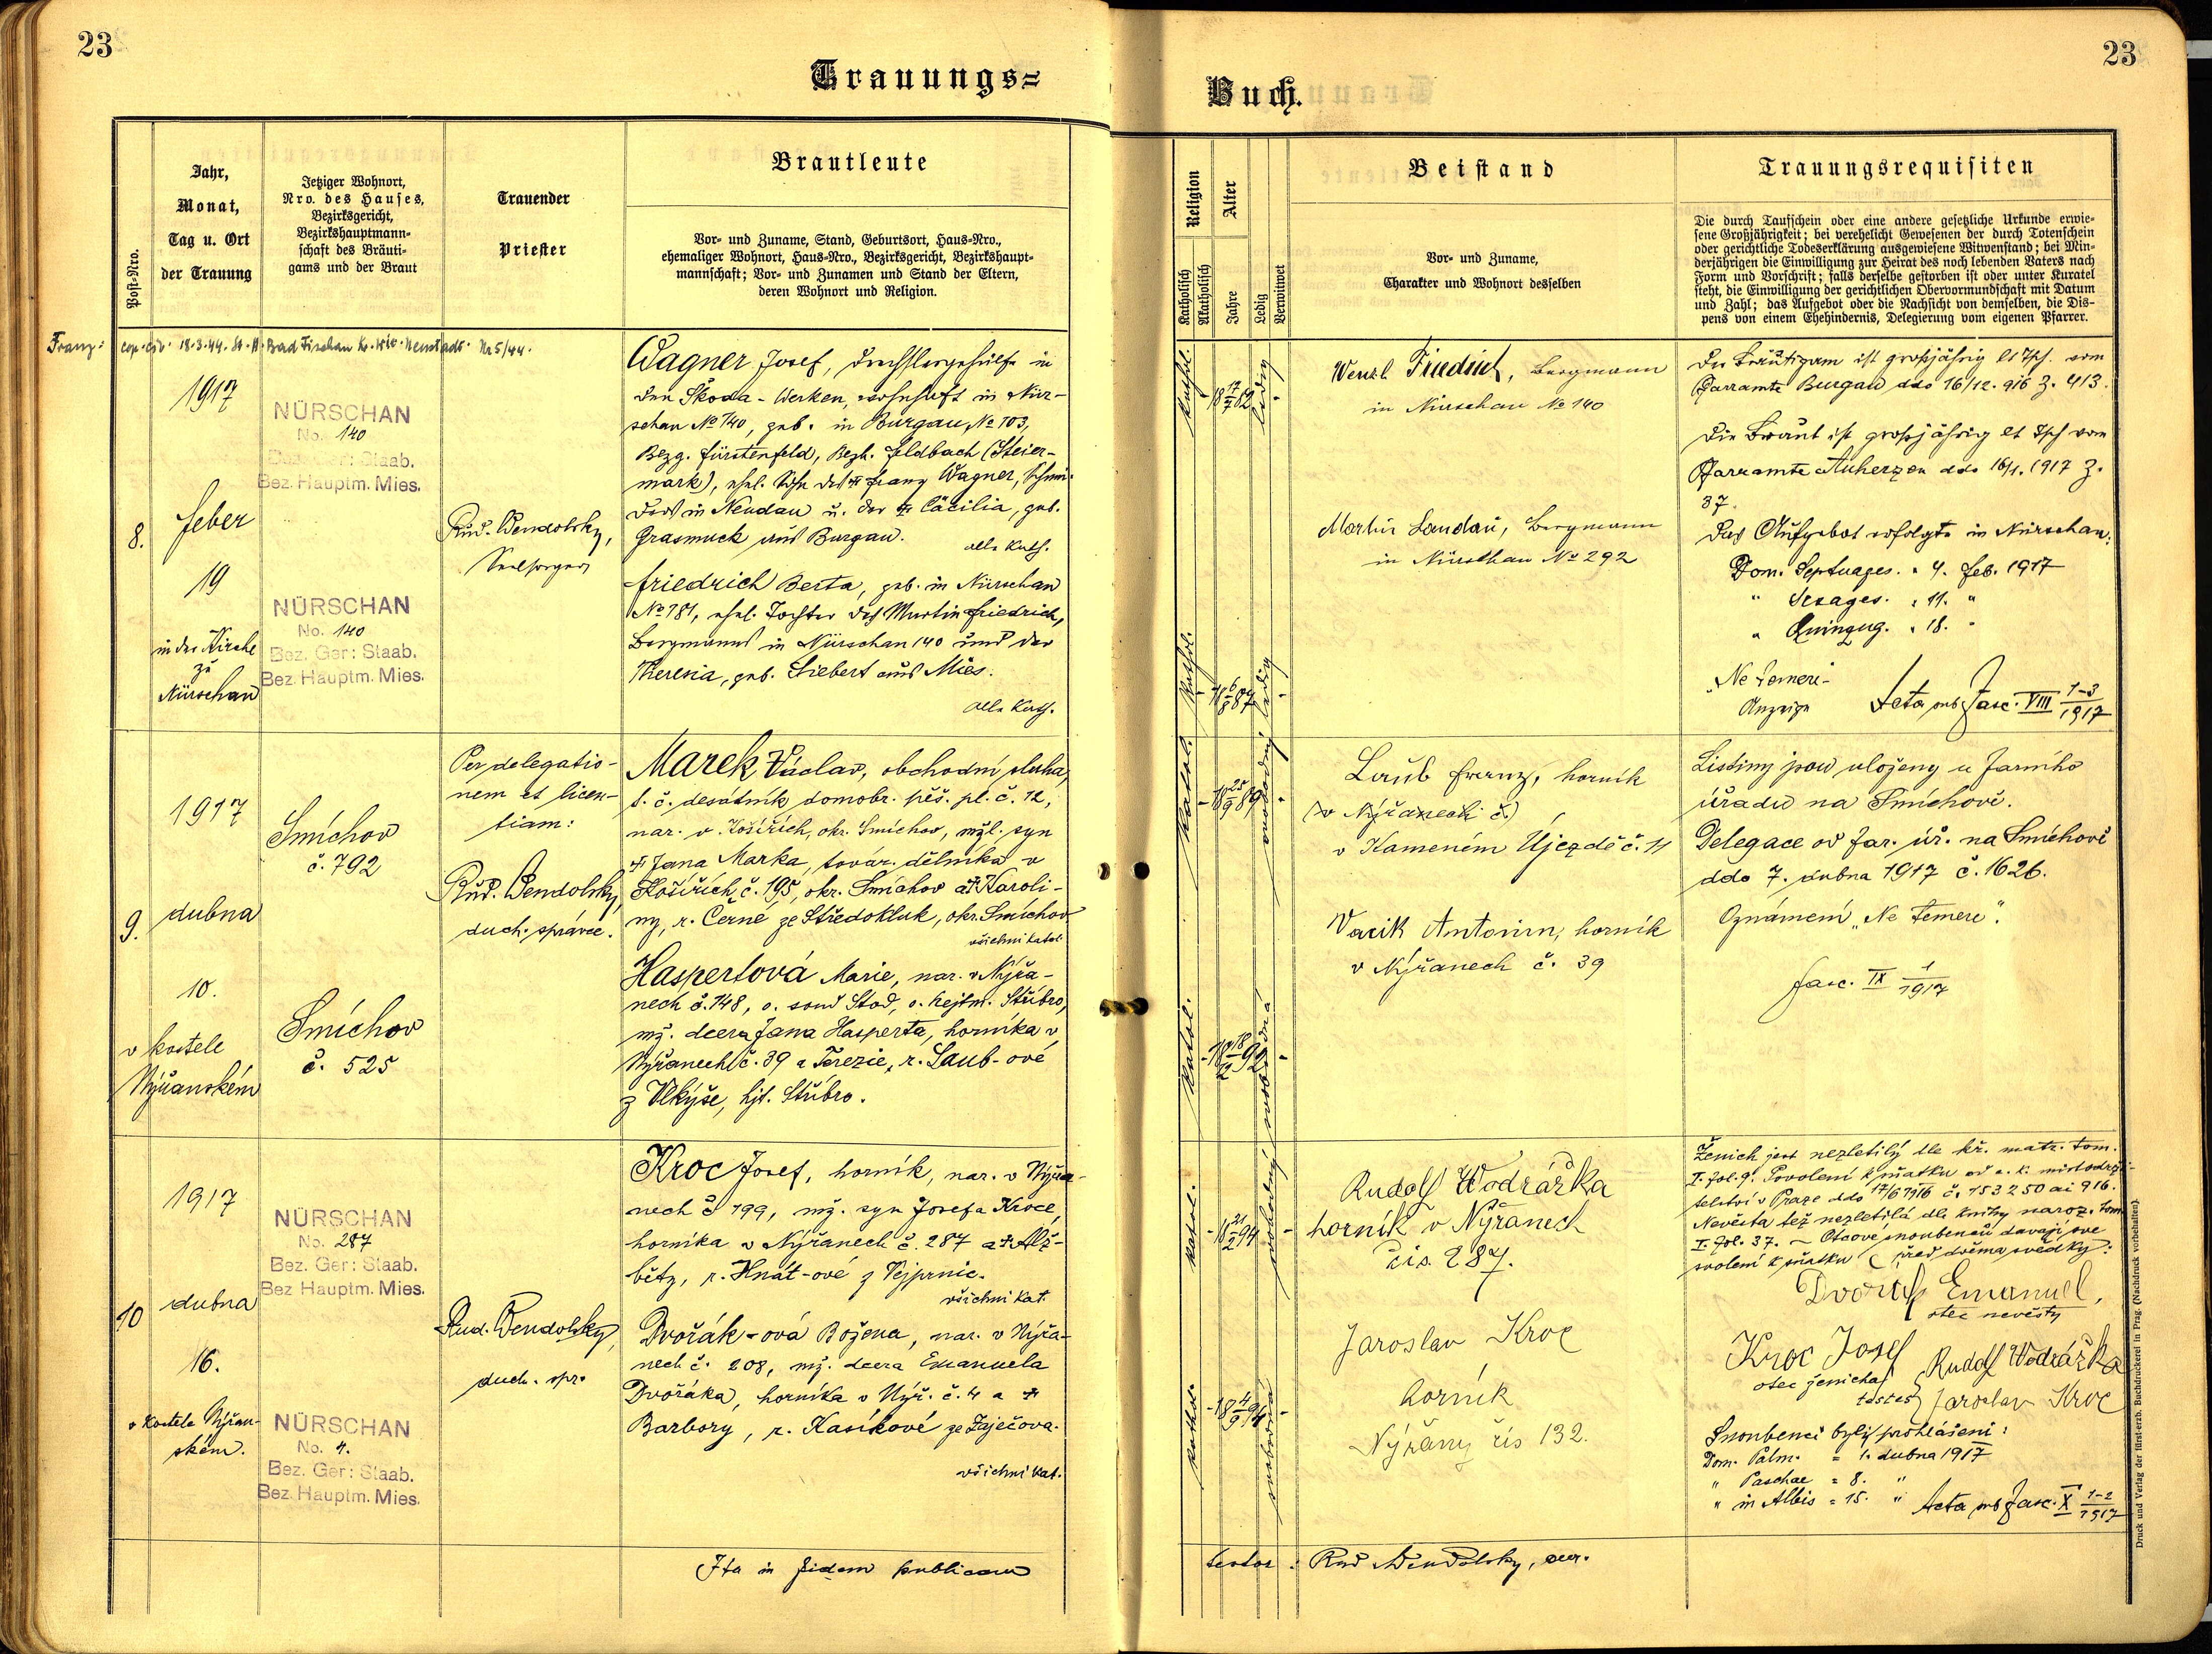 23
23
Trauungs=
Buch.
Post-Nro.
Jahr,
Monat,
Tag u. Ort
der Trauung
Jetziger Wohnort,
Nro. des Hauses,
Bezirksgericht,
Bezirkshauptmann-
schaft des Bräuti-
gams und der Braut
Trauender
Priester
Brautleute
Vor- und Zuname, Stand, Geburtsort, Haus-Nro.,
ehemaliger Wohnort, Haus-Nro., Bezirksgericht, Bezirkshaupt-
mannschaft; Vor- und Zunamen und Stand der Eltern,
deren Wohnort und Religion.
Religion
Katholisch
Akatholisch
Alter
Jahre
Ledig
Verwitwet
Beistand
Vor- und Zuname,
Charakter und Wohnort desselben
Trauungsrequisiten
Die durch Taufschein oder eine andere gesetzliche Urkunde erwie-
sene Großjährigkeit; bei verehelicht Gewesenen der durch Totenschein
oder gerichtliche Todeserklärung ausgewiesene Witwenstand; bei Min-
derjährigen die Einwilligung zur Heirat des noch lebenden Vaters nach
Form und Vorschrift; falls derselbe gestorben ist oder unter Kuratel
steht, die Einwilligung der gerichtlichen Obervormundschaft mit Datum
und Zahl; das Aufgebot oder die Nachsicht von demselben, die Dis-
pens von einem Ehehindernis, Delegierung vom eigenen Pfarrer.
Franz: cop. civ. 18.3.44. St. A. Bad Fischau Kr. Wr. Neustadt Nr 5/44.
8.
1917
feber
19
in der Kirche
zu
Nürschan
NÜRSCHAN
No. 140
Bez. Ger: Staab.
Bez. Hauptm. Mies.
NÜRSCHAN
No. 140
Bez. Ger: Staab.
Bez. Hauptm. Mies.
Rud. Wendolsky,
Seelsorger
Wagner Josef, Drechslergehilfe in
den Škoda-Werken, wohnhaft in Nür-
schan No 140, geb. in Burgau, No 103,
Bezg. Fürstenfeld, Bezh. Feldbach (Steier-
mark), ehel. Sohn des † Franz Wagner,
in Neudau u. der † Cäcilia, geb.
Grasmuck aus Burgau.
alle kath.
Friedrich Berta, geb. in Nürschan
No 181, ehel. Tochter des Martin Friedrich,
Bergmanns in Nürschan 140 und der
Theresia, geb. Siebert aus Mies.
alle kath.
kathol.
18 17/7 82
ledig
kathol.
18 6/8 87
ledig
Wenzl Friedrich, Bergmann
in Nürschan No 140
Martin Landau, Bergmann
in Nürschan No 292
Der Bräutigam ist großjährig lt Tsch. vom
Pfarramte Burgau ddo 16/12. 916 Z. 413.
Die Braut ist großjährig lt Tsch vom
Pfarramte Auherzen ddo 16/1. 1917 Z.
37.
Das Aufgebot erfolgte in Nürschan:
Dom. Septuages. = 4. Feb. 1917
" Sexages. = 11. "
" Quinqug. = 18. "
"Ne temere-
Anzeige
Acta sub Fasc. VIII 1-3/1917
9.
1917
dubna
10.
v kostele
Nýřanském
Smíchov
č. 792
Smíchov
č. 525
Per delegatio-
nem et licen-
tiam:
Rud. Wendolsky,
duch. správce.
Marek Václav, obchodní sluha,
t. č. desátník domobr. pěš. pl. č. 12,
nar. v Košířích, okr. Smíchov, mžl. syn
† Jana Marka, továr. dělníka v
Košířích č. 195, okr. Smíchov a † Karoli-
ny, r. Černé ze Středokluk, okr. Smíchov
všichni katol.
Haspertová Marie, nar. v Nýřa-
nech č. 148, o. soud Stod, o. hejtm. Stříbro,
mž. dcera Jana Hasperta, horníka v
Nýřanech č. 39 a Terezie, r. Laub-ové
z Vlkýše, hjt. Stříbro.
katol.
18 25/9 89
svobodný
katol.
18 18/2 92
svobodná
Laub Franz, horník
(v Nýřanech č.)
v Kameném Újezdě č. 11
Vacik Antonin, horník
v Nýřanech č. 39
Listiny jsou uloženy u farního
úřadu na Smíchově.
Delegace od far. úř. na Smíchově
ddo 7. dubna 1917 č. 1626.
Oznámení „Ne temere".
fasc. IX 1/1917
10
1917
dubna
16.
v kostele Nýřan-
ském.
NÜRSCHAN
No. 287
Bez. Ger: Staab.
Bez Hauptm. Mies.
NÜRSCHAN
No. 4.
Bez. Ger: Staab.
Bez. Hauptm. Mies.
Rud. Wendolsky,
duch. spr.
Kroc Josef, horník, nar. v Nýřa-
nech č 199, mž. syn Josefa Kroce,
horníka v Nýřanech č. 287 a † Alž-
běty, r. Hnát-ové z Vejprnic.
všichni kat.
Dvořák-ová Božena, nar. v Nýřa-
nech č. 208, mž. dcera Emanuela
Dvořáka, horníka v Nýř. č. 4 a †
Barbory, r. Kasíkové ze Zaječova.
všichni kat.
katol.
18 21/2 94
svobodný
kathol.
18 4/9 94
svobodná
Rudolf Wodrážka
horník v Nýřanech
čís. 287.
Jaroslav Kroc
horník
Nýřany čís 132.
Ženich jest nezletilý dle kř. matr. tom.
I. fol. 9. Povolení k sňatku od c. k. místodrži-
telství v Praze ddo 17/6 1916 č. 153250 ai 916.
Nevěsta též nezletilá dle knihy naroz. tom
I. fol. 37. – Otcové snoubenců davají své
svolení k sňatku před dvěma svědky:
Dvořák Emanuel,
otec nevěsty
Kroc Josef
otec ženicha
testes
Rudolf Wodrážka
Jaroslav Kroc
Snoubenci byli prohlášeni:
Dom. Palm. = 1. dubna 1917
" Paschae = 8. "
" in Albis = 15. "
Acta sub Fasc. X 1-2/1917
Ita in fidem publicam
testor: Rud Wendolsky, cur.
Druck und Verlag der fürst-erzb. Buchdruckerei in Prag. (Nachdruck vorbehalten).